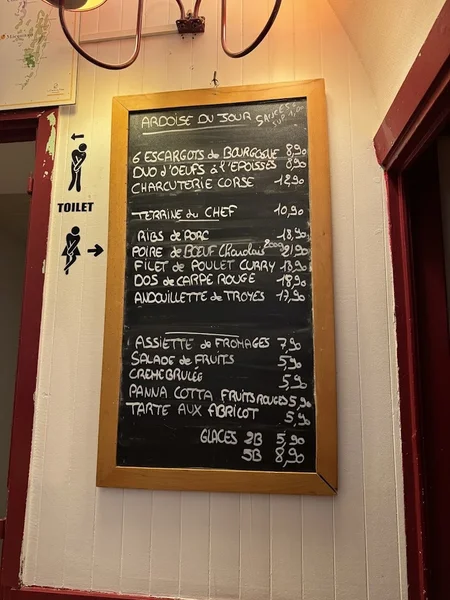 ARDOISE DU JOUR
SAUCES
SUP.
6 ESCARGOTS de BOURGOGNE 8,90
DUO d'OEUFS à l'EPOISSES 8,90
CHARCUTERIE CORSE 12,90
TERRINE du CHEF 10,90
RIBS de PORC 18,90
POIRE de BŒUF Charolais 200g 21,90
FILET de POULET CURRY 13,90
DOS de CARPE ROUGE 18,90
ANDOUILLETTE de TROYES 17,90
ASSIETTE de FROMAGES 7,90
SALADE de FRUITS 5,90
CREME BRULÉE 5,90
PANNA COTTA FRUITS ROUGES 5,90
TARTE AUX ABRICOT 5,90
GLACES 2B 5,90
3B 8,90
TOILET